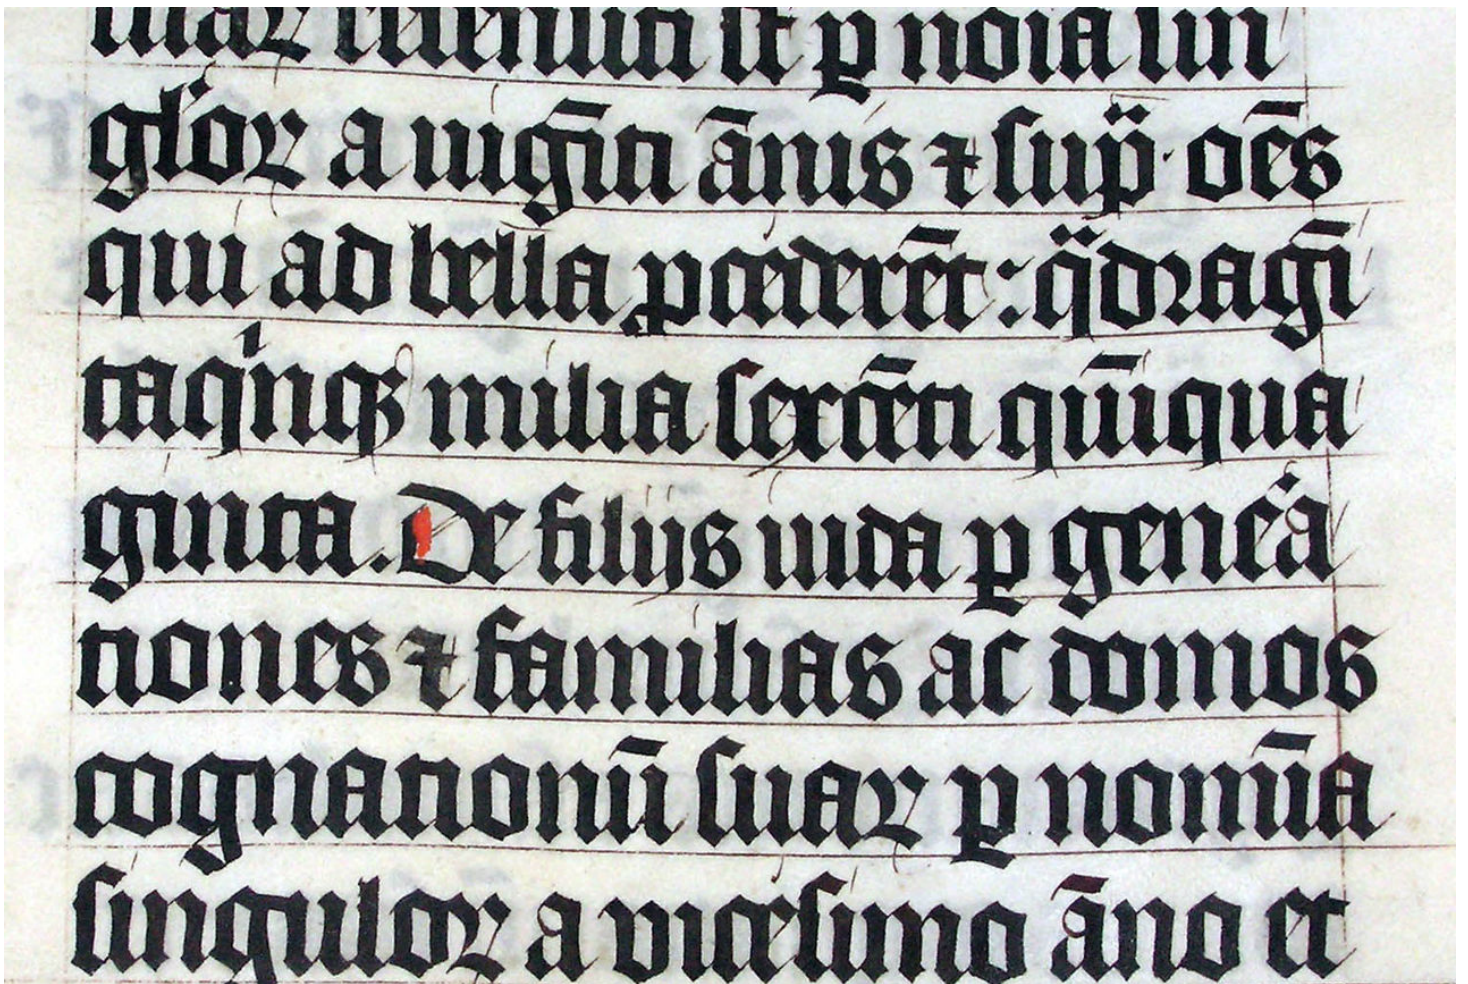 suaꝝ recensiti sūt ꝑ noīa sin
gl'oꝝ a uigīti ānis ⁊ sup̈· oēs
qui ad bella ꝓcederēt : q̈dragī
taqⁱnqꝫ milia sexcēti quīqua
ginta. De filijs iuda ꝑ genēᵃ
tiones ⁊ familias ac domos
cognationū suaꝝ ꝑ nomīa
singuloꝝ a vicesimo āno et